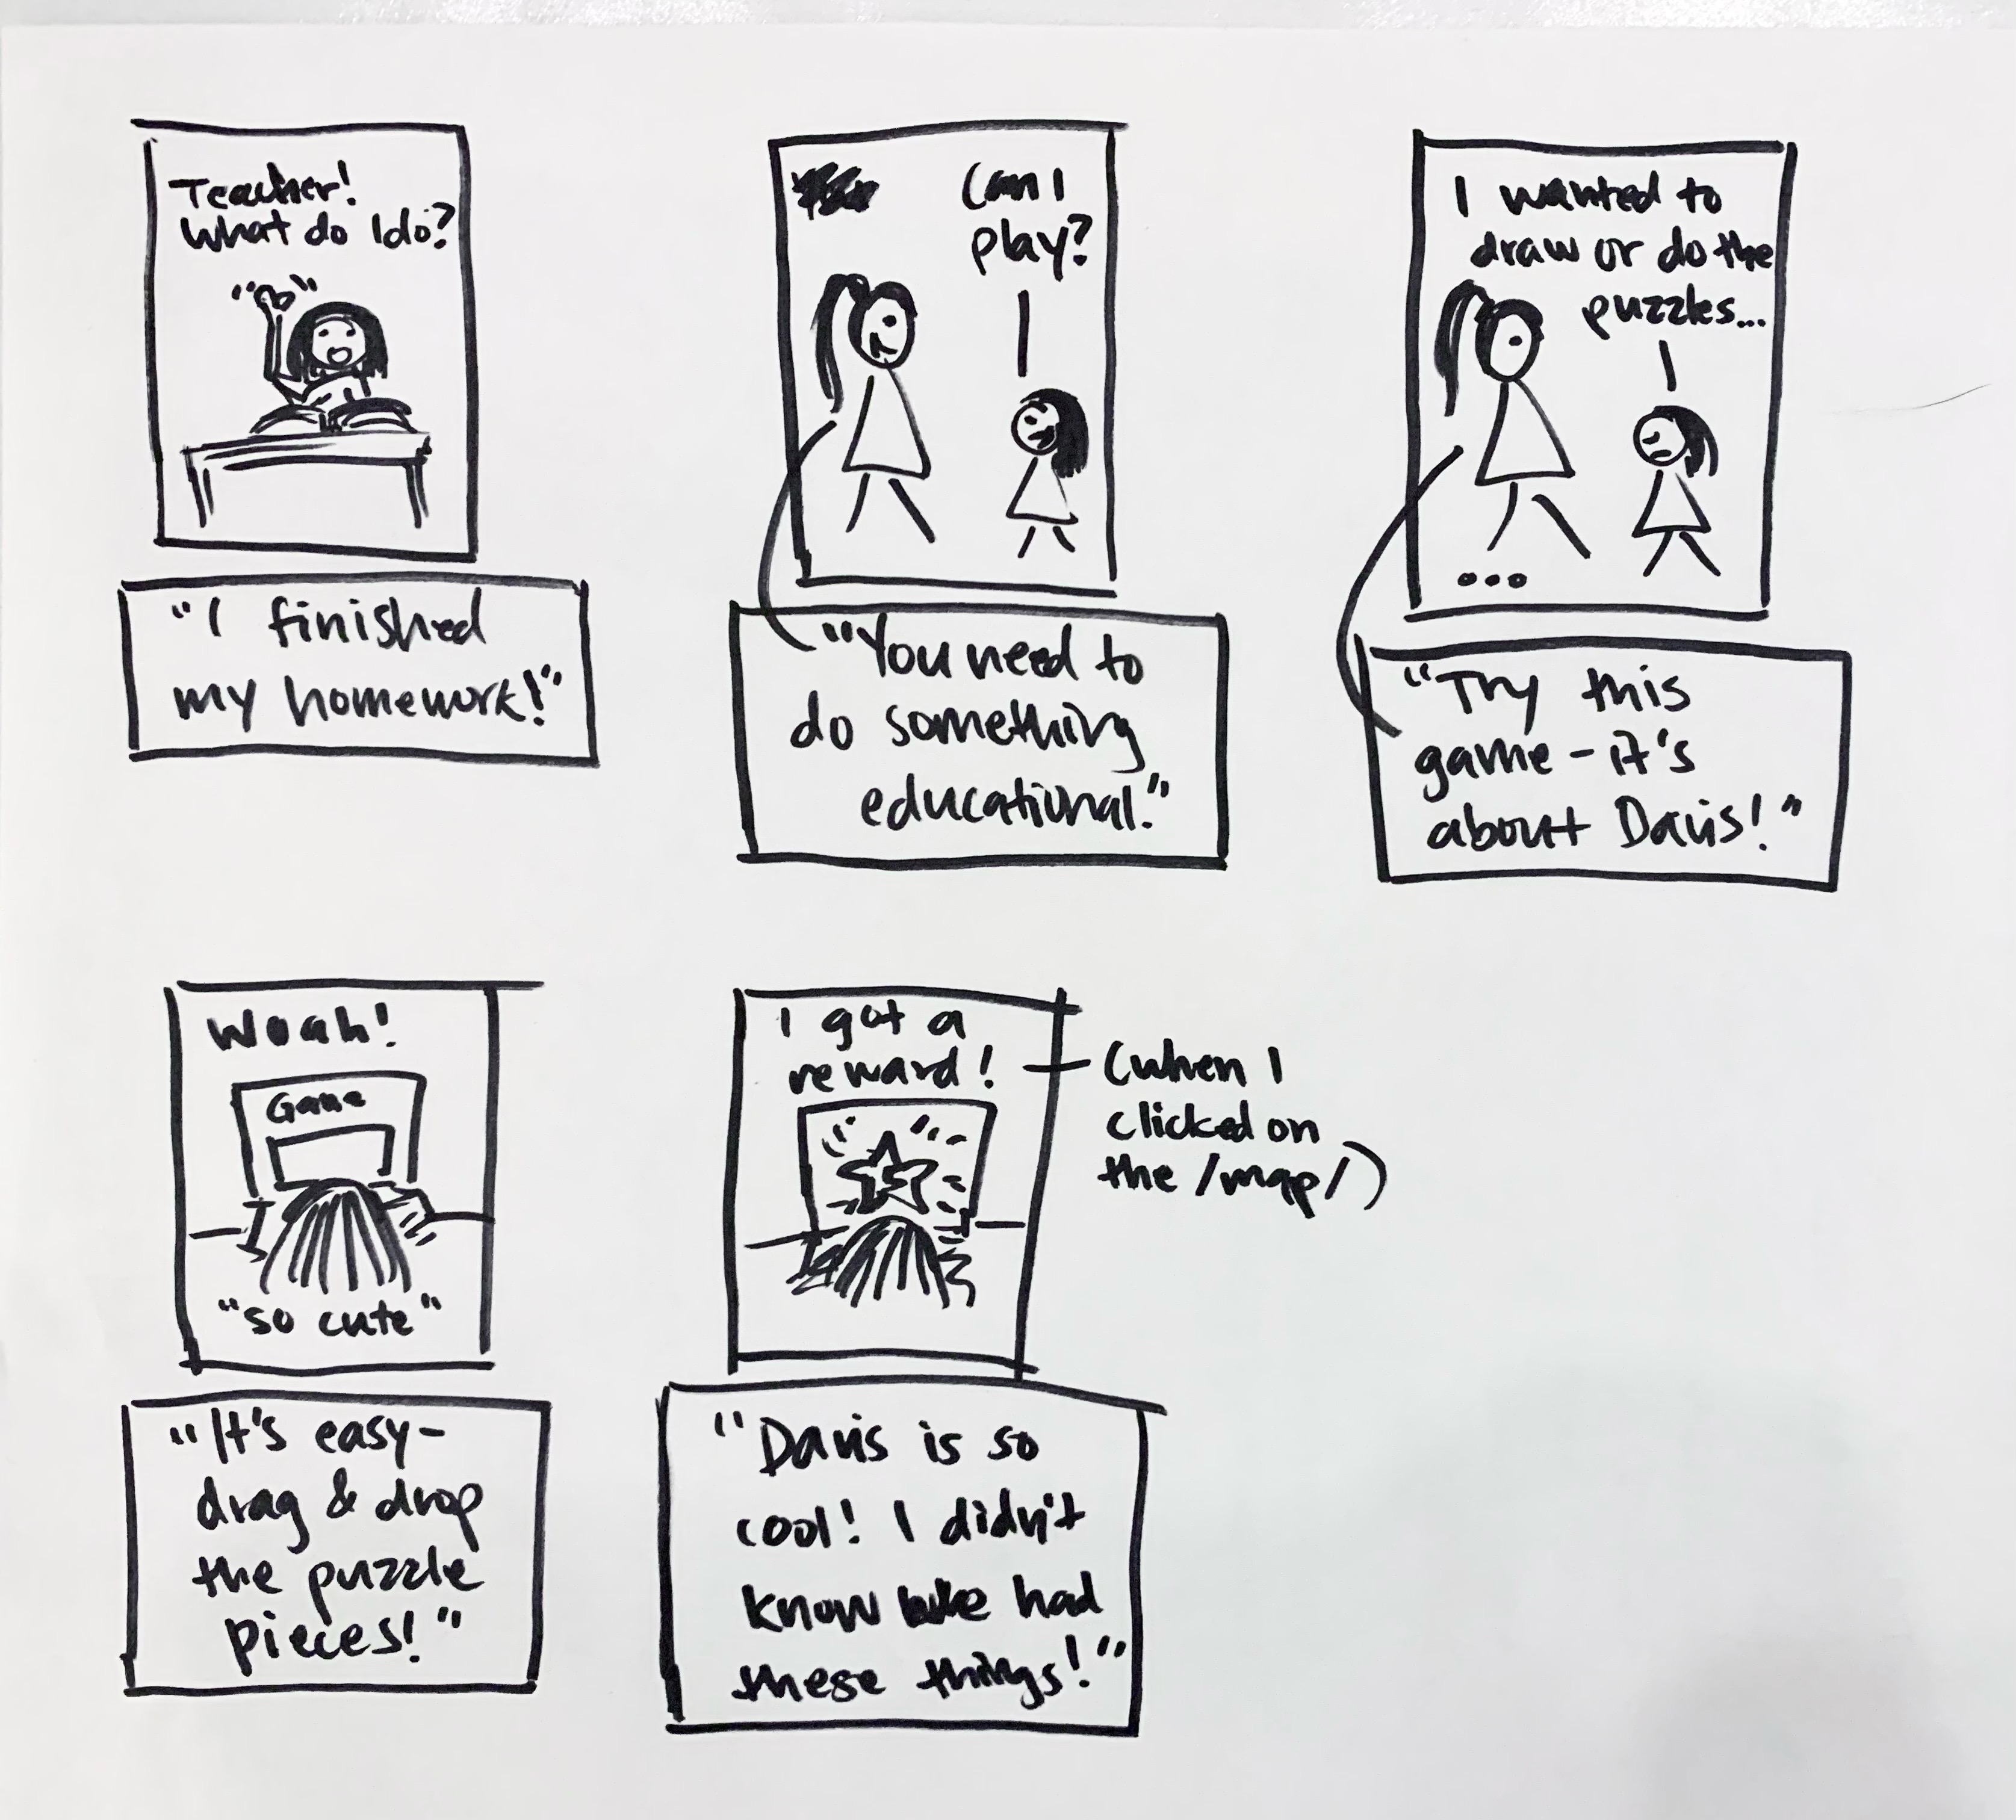 Teacher!
What do I do?
"I finished
my homework!"
Can I
play?
"You need to
do something
educational."
I wanted to
draw or do the
puzzles...
...
"Try this
game - it's
about Davis!"
Woah!
Game
"so cute"
"It's easy-
drag & drop
the puzzle
pieces!"
I got a
reward!
(when I
clicked on
the /map/)
"Davis is so
cool! I didn't
know we had
these things!"